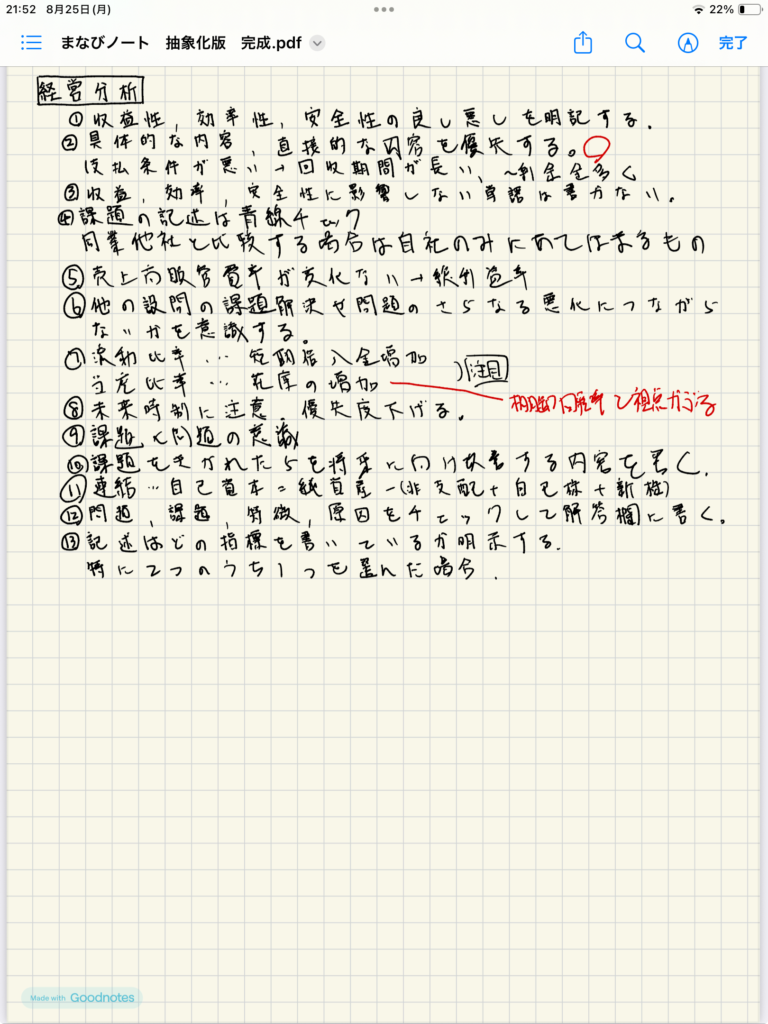 21:52 8月25日(月)
22%
まなびノート 抽象化版 完成.pdf
完了
経営分析
① 収益性, 効率性, 安全性の良し悪しを明記する.
② 具体的な内容, 直接的な内容を優先する。
支払条件が悪い→回収期間が長い、~剰余金多く
③ 収益, 効率, 安全性に影響しない単語は書かない.
④ 課題の記述は青線チェック
同業他社と比較する場合は自社のみにあてはまるもの
⑤ 売上高販管費率が変化ない→総利益率
⑥ 他の設問の課題解決や問題のさらなる悪化につながら
ないかを意識する。
⑦ 流動比率…短期借入金増加
当座比率…在庫の増加
注目
と視点がずれる
⑧ 未来時制に注意. 優先度下げる.
⑨ 課題と問題の意識
⑩ 課題をきかれたら将来に向け改善する内容を書く.
⑪ 連結…自己資本=純資産-(非支配+自己株+新株)
⑫ 問題, 課題, 特徴, 原因をチェックして解答欄に書く.
⑬ 記述はどの指標を書いているか明示する.
特に2つのうち1つを選んだ場合.
Made with Goodnotes